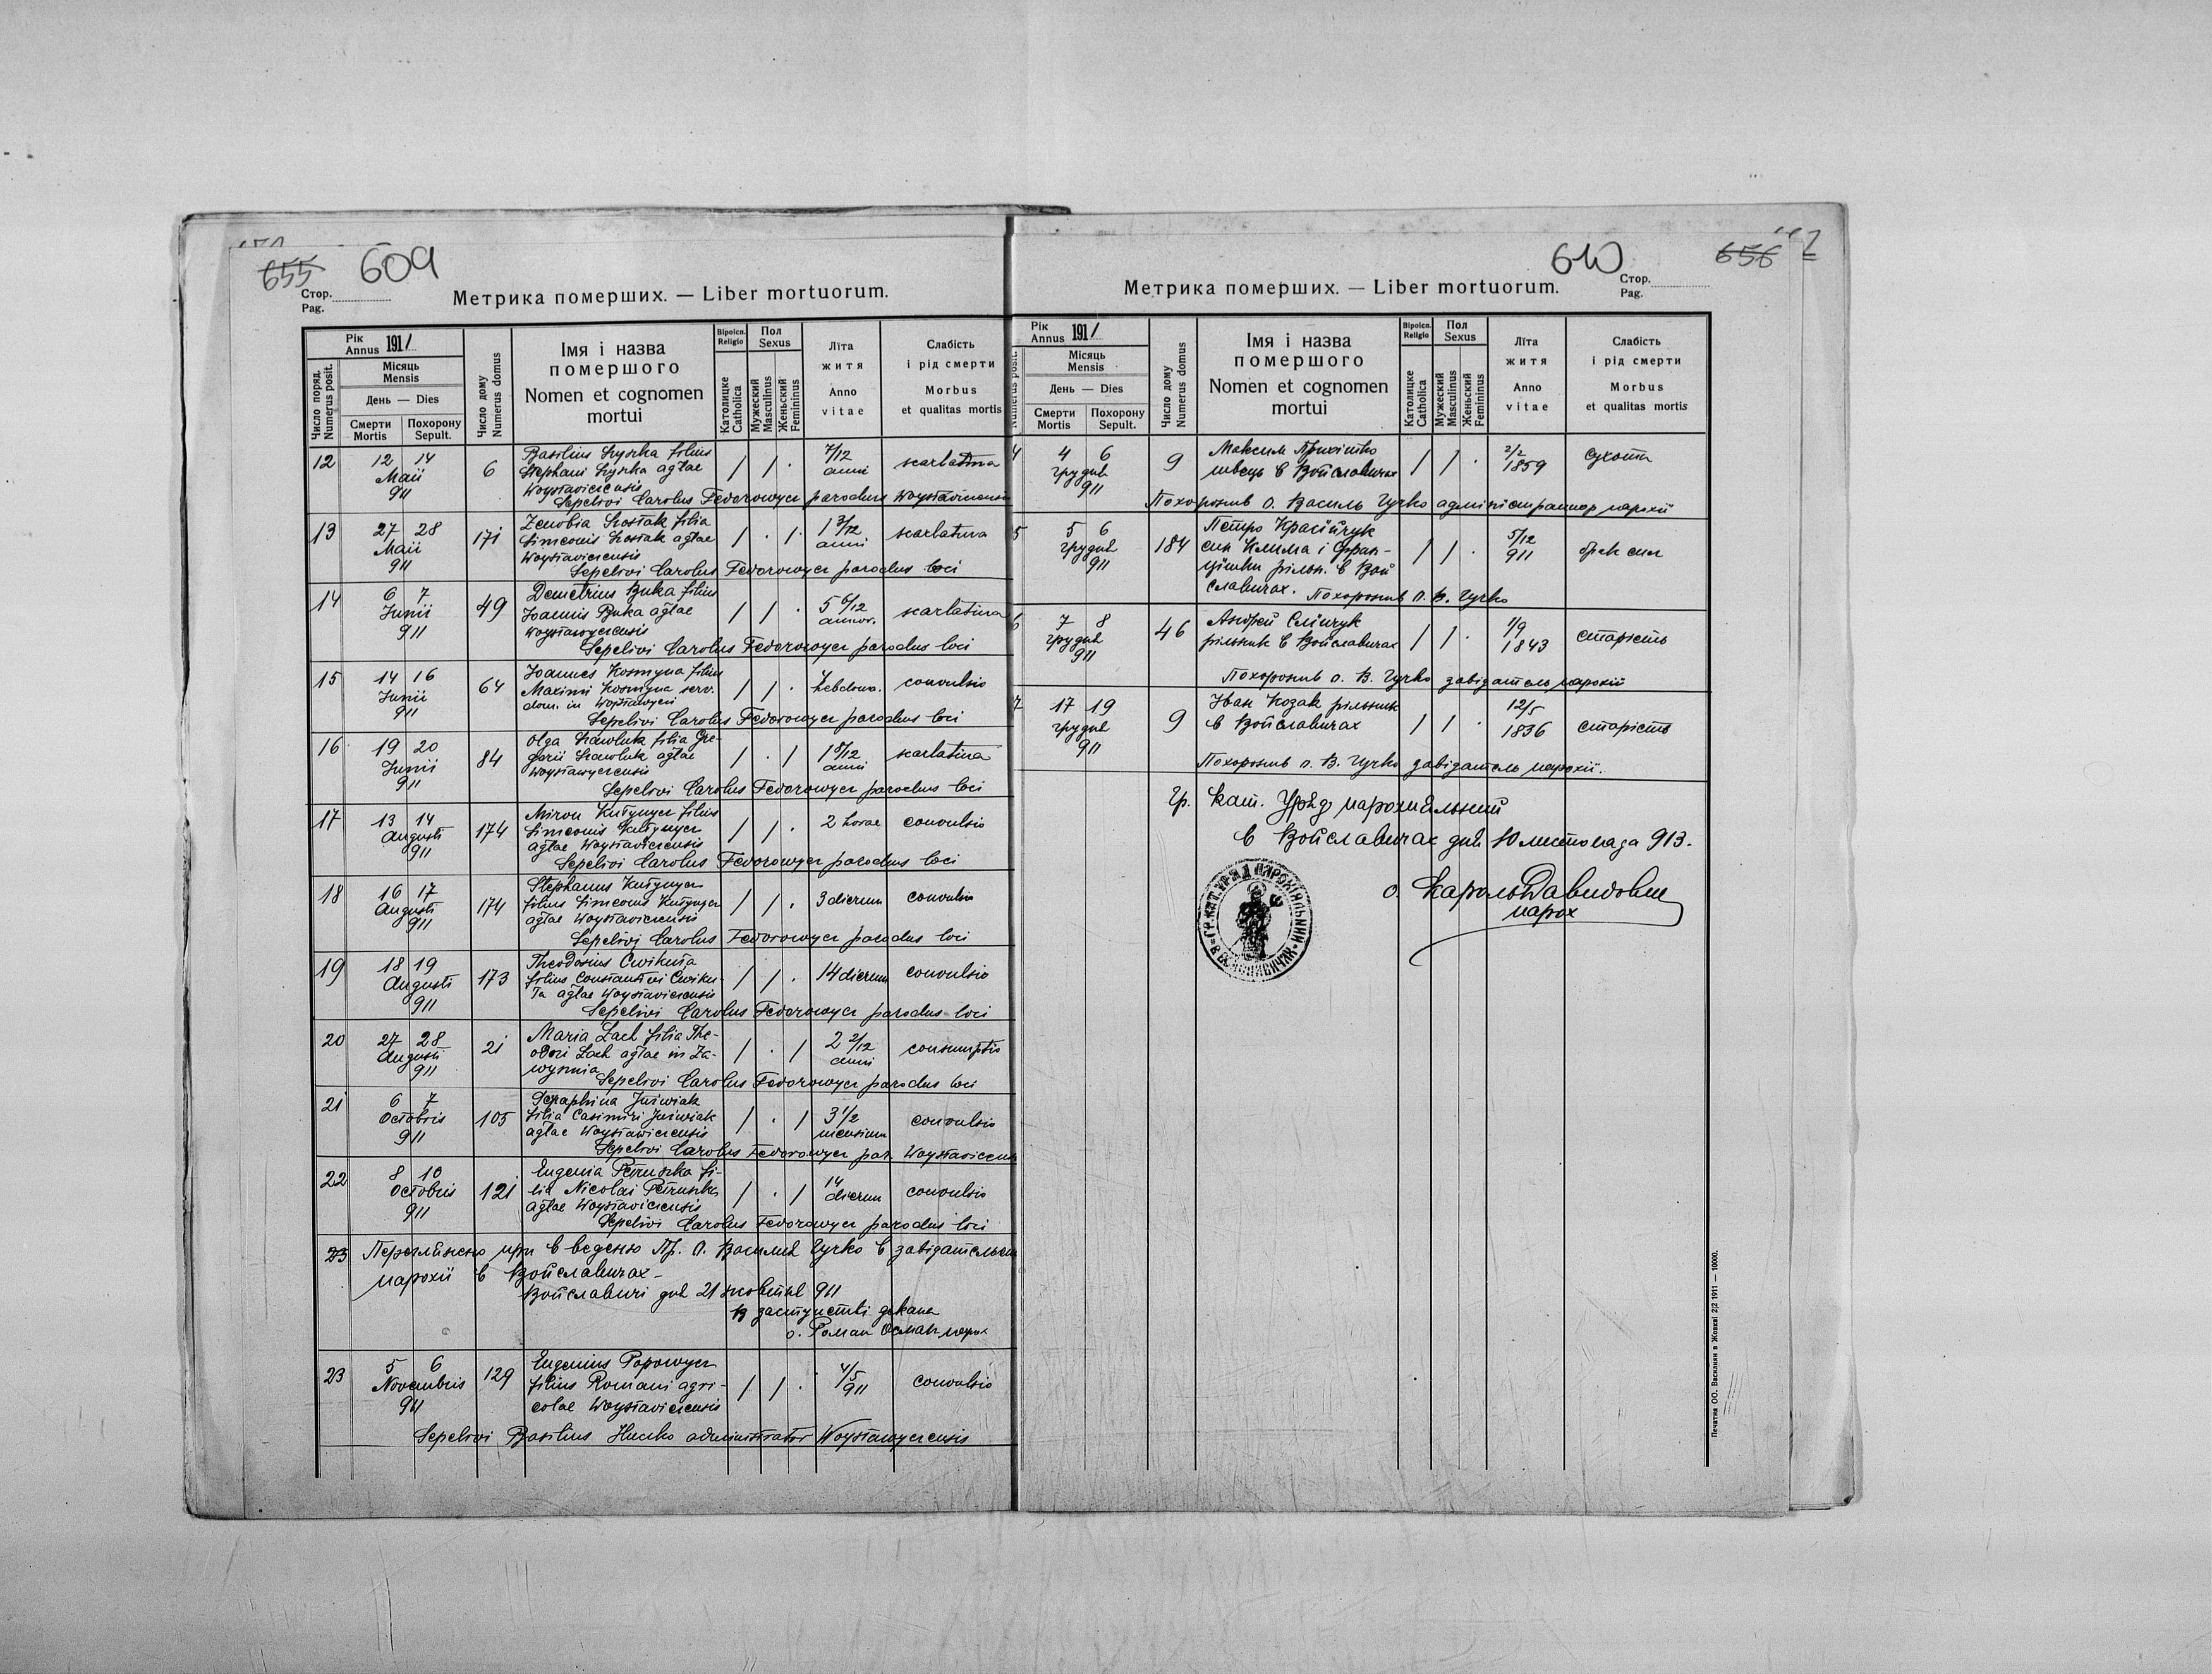 655 609
Стор.
Pag.
Метрика померших. — Liber mortuorum.
Рік
Annus 1911
Число поряд.
Numerus posit.
Місяць
Mensis
День — Dies
Смерти
Mortis
Похорону
Sepult.
Число дому
Numerus domus
Імя і назва
помершого
Nomen et cognomen
mortui
Віроісп.
Religio
Католицке
Catholica
Пол
Sexus
Мужеский
Masculinus
Женьский
Femininus
Літа
житя
Anno
vitae
Слабість
і рід смерти
Morbus
et qualitas mortis
12 12 14 6 Basilius filius 1 1 · 7/12 scarlatina
Maii Stephani agłae anni
911 Woysławicensis
Sepelivi Carolus Fedorowycz parochus Woysławicensis
13 27 28 171 Zenobia filia 1 · 1 1 3/12 scarlatina
Maii Simeonis agłae anni
911 Woysławicensis
Sepelivi Carolus Fedorowycz parochus loci
14 6 7 49 Demetrius Buka filius 1 1 · 5 6/12 scarlatina
Junii Joannis Buka agłae annor.
911 Woysławycensis
Sepelivi Carolus Fedorowycz parochus loci
15 14 16 64 Joannes Kosmyna filius 1 1 · hebdom. convulsio
Junii Maximi Kosmyna serv.
911 dom. in Woysławyci
Sepelivi Carolus Fedorowycz parochus loci
16 19 20 84 Olga filia Gre- 1 · 1 1 8/12 scarlatina
Junii gorii agłae anni
911 Woysławycensis
Sepelivi Carolus Fedorowycz parochus loci
17 13 14 174 Miron filius 1 1 · 2 horae convulsio
Augusti Simeonis
911 agłae Woysławicensis
Sepelivi Carolus Fedorowycz parochus loci
18 16 17 174 Stephanus 1 1 · 3 dierum convulsio
Augusti filius Simeonis
911 agłae Woysławicensis
Sepelivi Carolus Fedorowycz parochus loci
19 18 19 173 Theodosius Cwikuła 1 1 · 14 dierum convulsio
Augusti filius Constantini Cwiku-
911 ła agłae Woysławicensis
Sepelivi Carolus Fedorowycz parochus loci
20 27 28 21 Maria Lach filia The- 1 · 1 2 2/12 consumptio
Augusti odori Lach agłae in Za- anni
911 wysznia
Sepelivi Carolus Fedorowycz parochus loci
21 6 7 105 Seraphina Juświak 1 · 1 3 1/2 convulsio
Octobris filia Casimiri Juświak mensium
911 agłae Woysławicensis
Sepelivi Carolus Fedorowycz par. Woysławicensis
22 8 10 121 Eugenia Petruszka fi- 1 · 1 14 convulsio
Octobris lia Nicolai Petruszka dierum
911 agłae Woysławicensis
Sepelivi Carolus Fedorowycz parochus loci
23 при введеню Пр. О. Василия Гучко в
парохії в Войславичах -
Войславичі дня 21 жовтня 911
В заступстві декана
о. Роман парох
23 5 6 129 Eugenius Popowycz 1 1 · 4/5 convulsio
Novembris filius Romani agri- 911
911 colae Woysławicensis
Sepelivi Basilius Huczko administrator Woysławycensis
610 656
Стор.
Pag.
Метрика померших. — Liber mortuorum.
Рік
Annus 1911
Numerus posit.
Місяць
Mensis
День — Dies
Смерти
Mortis
Похорону
Sepult.
Число дому
Numerus domus
Імя і назва
помершого
Nomen et cognomen
mortui
Віроісп.
Religio
Католицке
Catholica
Пол
Sexus
Мужеский
Masculinus
Женьский
Femininus
Літа
житя
Anno
vitae
Слабість
і рід смерти
Morbus
et qualitas mortis
4 4 6 9 Максим 1 1 · 2/2 сухоти
грудня швець в Войславичах 1859
911
Похоронив о. Василь Гучко адміністратор парохії
5 5 6 184 Петро 1 1 · 5/12 брак сил
грудня син Клима і Фран- 911
911 цішки рільн. в Вой
славичах. Похоронив о. В. Гучко
6 7 8 46 Андрей 1 1 · 1/9 старість
грудня рільник в Войславичах 1843
911
Похоронив о. В. Гучко завідатель парохії
7 17 19 9 Іван Козак рільник 1 1 · 12/5 старість
грудня в Войславичах 1836
911
Похоронив о. В. Гучко завідатель парохії.
Гр. кат. Уряд парохіяльний
в Войславичах дня 10 листопада 913.
о. Кароль Давидович
парох
ГР. КАТ. УРЯД ПАРОХІЯЛЬНИЙ
Печатня ОО. Василиян в Жовкві 2|2 1911 — 10000.